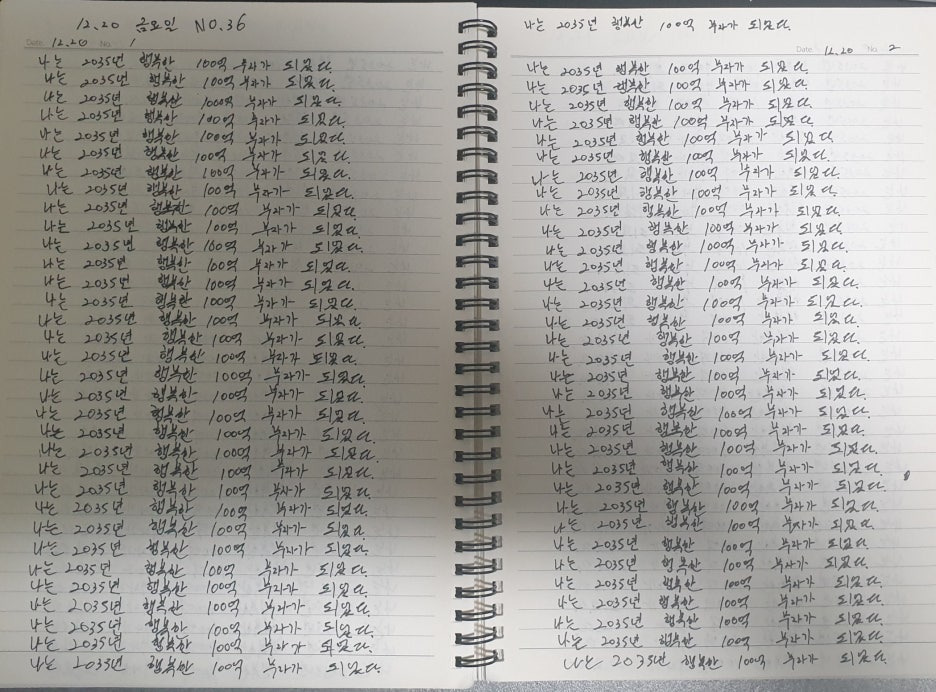 12.20 금요일 NO.36
Date. 12.20 No. 1
나는 2035년 행복한 100억 부자가 되었다.
나는 2035년 행복한 100억 부자가 되었다.
나는 2035년 행복한 100억 부자가 되었다.
나는 2035년 행복한 100억 부자가 되었다.
나는 2035년 행복한 100억 부자가 되었다.
나는 2035년 행복한 100억 부자가 되었다.
나는 2035년 행복한 100억 부자가 되었다.
나는 2035년 행복한 100억 부자가 되었다.
나는 2035년 행복한 100억 부자가 되었다.
나는 2035년 행복한 100억 부자가 되었다.
나는 2035년 행복한 100억 부자가 되었다.
나는 2035년 행복한 100억 부자가 되었다.
나는 2035년 행복한 100억 부자가 되었다.
나는 2035년 행복한 100억 부자가 되었다.
나는 2035년 행복한 100억 부자가 되었다.
나는 2035년 행복한 100억 부자가 되었다.
나는 2035년 행복한 100억 부자가 되었다.
나는 2035년 행복한 100억 부자가 되었다.
나는 2035년 행복한 100억 부자가 되었다.
나는 2035년 행복한 100억 부자가 되었다.
나는 2035년 행복한 100억 부자가 되었다.
나는 2035년 행복한 100억 부자가 되었다.
나는 2035년 행복한 100억 부자가 되었다.
나는 2035년 행복한 100억 부자가 되었다.
나는 2035년 행복한 100억 부자가 되었다.
나는 2035년 행복한 100억 부자가 되었다.
나는 2035년 행복한 100억 부자가 되었다.
나는 2035년 행복한 100억 부자가 되었다.
나는 2035년 행복한 100억 부자가 되었다.
나는 2035년 행복한 100억 부자가 되었다.
나는 2035년 행복한 100억 부자가 되었다.
나는 2035년 행복한 100억 부자가 되었다.
나는 2035년 행복한 100억 부자가 되었다.
나는 2035년 행복한 100억 부자가 되었다.
Date. 12.20 No. 2
나는 2035년 행복한 100억 부자가 되었다.
나는 2035년 행복한 100억 부자가 되었다.
나는 2035년 행복한 100억 부자가 되었다.
나는 2035년 행복한 100억 부자가 되었다.
나는 2035년 행복한 100억 부자가 되었다.
나는 2035년 행복한 100억 부자가 되었다.
나는 2035년 행복한 100억 부자가 되었다.
나는 2035년 행복한 100억 부자가 되었다.
나는 2035년 행복한 100억 부자가 되었다.
나는 2035년 행복한 100억 부자가 되었다.
나는 2035년 행복한 100억 부자가 되었다.
나는 2035년 행복한 100억 부자가 되었다.
나는 2035년 행복한 100억 부자가 되었다.
나는 2035년 행복한 100억 부자가 되었다.
나는 2035년 행복한 100억 부자가 되었다.
나는 2035년 행복한 100억 부자가 되었다.
나는 2035년 행복한 100억 부자가 되었다.
나는 2035년 행복한 100억 부자가 되었다.
나는 2035년 행복한 100억 부자가 되었다.
나는 2035년 행복한 100억 부자가 되었다.
나는 2035년 행복한 100억 부자가 되었다.
나는 2035년 행복한 100억 부자가 되었다.
나는 2035년 행복한 100억 부자가 되었다.
나는 2035년 행복한 100억 부자가 되었다.
나는 2035년 행복한 100억 부자가 되었다.
나는 2035년 행복한 100억 부자가 되었다.
나는 2035년 행복한 100억 부자가 되었다.
나는 2035년 행복한 100억 부자가 되었다.
나는 2035년 행복한 100억 부자가 되었다.
나는 2035년 행복한 100억 부자가 되었다.
나는 2035년 행복한 100억 부자가 되었다.
나는 2035년 행복한 100억 부자가 되었다.
나는 2035년 행복한 100억 부자가 되었다.